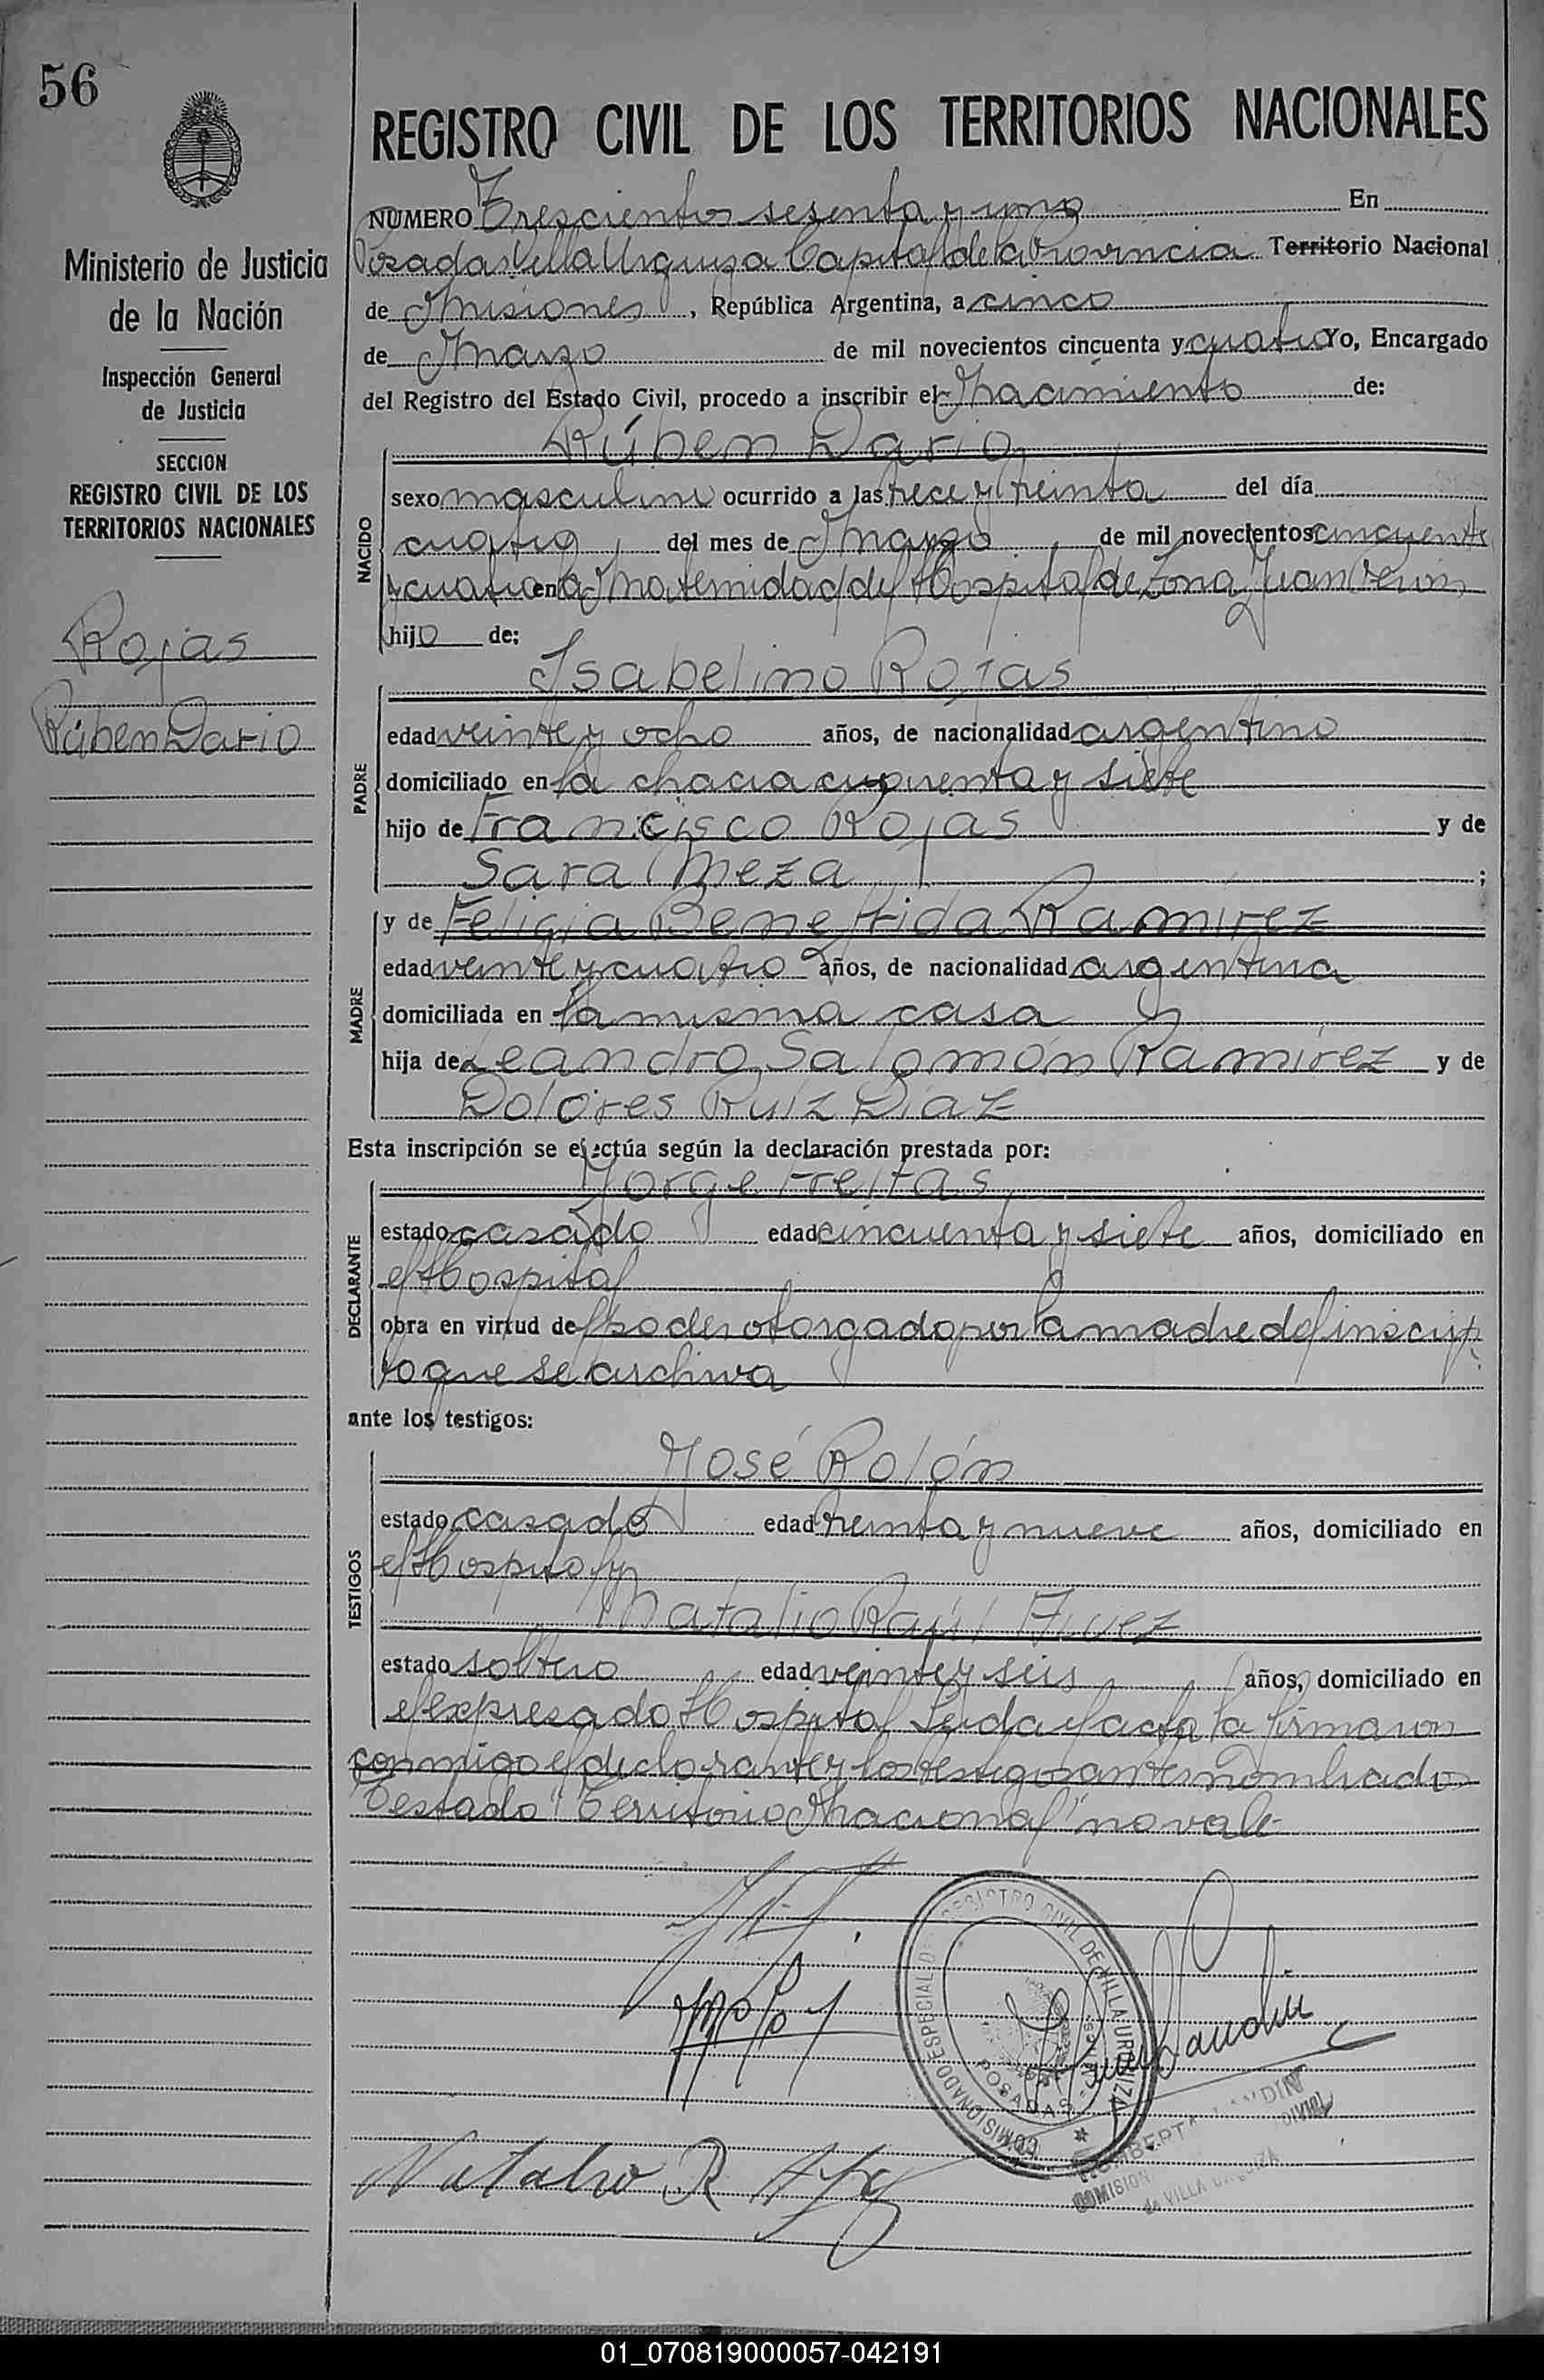 56
Ministerio de Justicia
de la Nación
Inspección General
de Justicia
SECCION
REGISTRO CIVIL DE LOS
TERRITORIOS NACIONALES
Rojas
Rúben Dario
REGISTRO CIVIL DE LOS TERRITORIOS NACIONALES
NUMERO Trescientos sesenta y uno En
Posadas Villa Urquiza Capital de la Provincia Territorio Nacional
de Misiones, República Argentina, a cinco
de Marzo de mil novecientos cincuenta y cuatro Yo, Encargado
del Registro del Estado Civil, procedo a inscribir el Nacimiento de:
Rúben Dario
NACIDO
sexo masculino ocurrido a las trece y treinta del día
cuatro del mes de Marzo de mil novecientos cincuenta
y cuatro en la Maternidad del Hospital de Zona Juan Perón
hijo de:
Isabelino Rojas
PADRE
edad veinte y ocho años, de nacionalidad argentino
domiciliado en la chacra cuarenta y siete
hijo de Francisco Rojas y de
Sara Meza ;
MADRE
y de Felicia Benefrida Ramírez
edad veinte y cuatro años, de nacionalidad argentina
domiciliada en la misma casa
hija de Leandro Salomón Ramírez y de
Dolores Ruíz Díaz
Esta inscripción se efectúa según la declaración prestada por:
Jorge Freitas
DECLARANTE
estado casado edad cincuenta y siete años, domiciliado en
el Hospital
obra en virtud del Poder otorgado por la madre del inscrip-
to que se archiva
ante los testigos:
José Rolón
TESTIGOS
estado casado edad treinta y nueve años, domiciliado en
el Hospital y
Natalio Raúl
estado soltero edad veinte y seis años, domiciliado en
el expresado Hospital Leida el acta la firmaron
conmigo el declarante y los testigos antes nombrados
Testado "Territorio Nacional" no vale
REGISTRO CIVIL DE VILLA URQUIZA
COMISIONADO ESPECIAL
POSADAS
Natalio R.
de VILLA URQUIZA
01_070819000057-042191